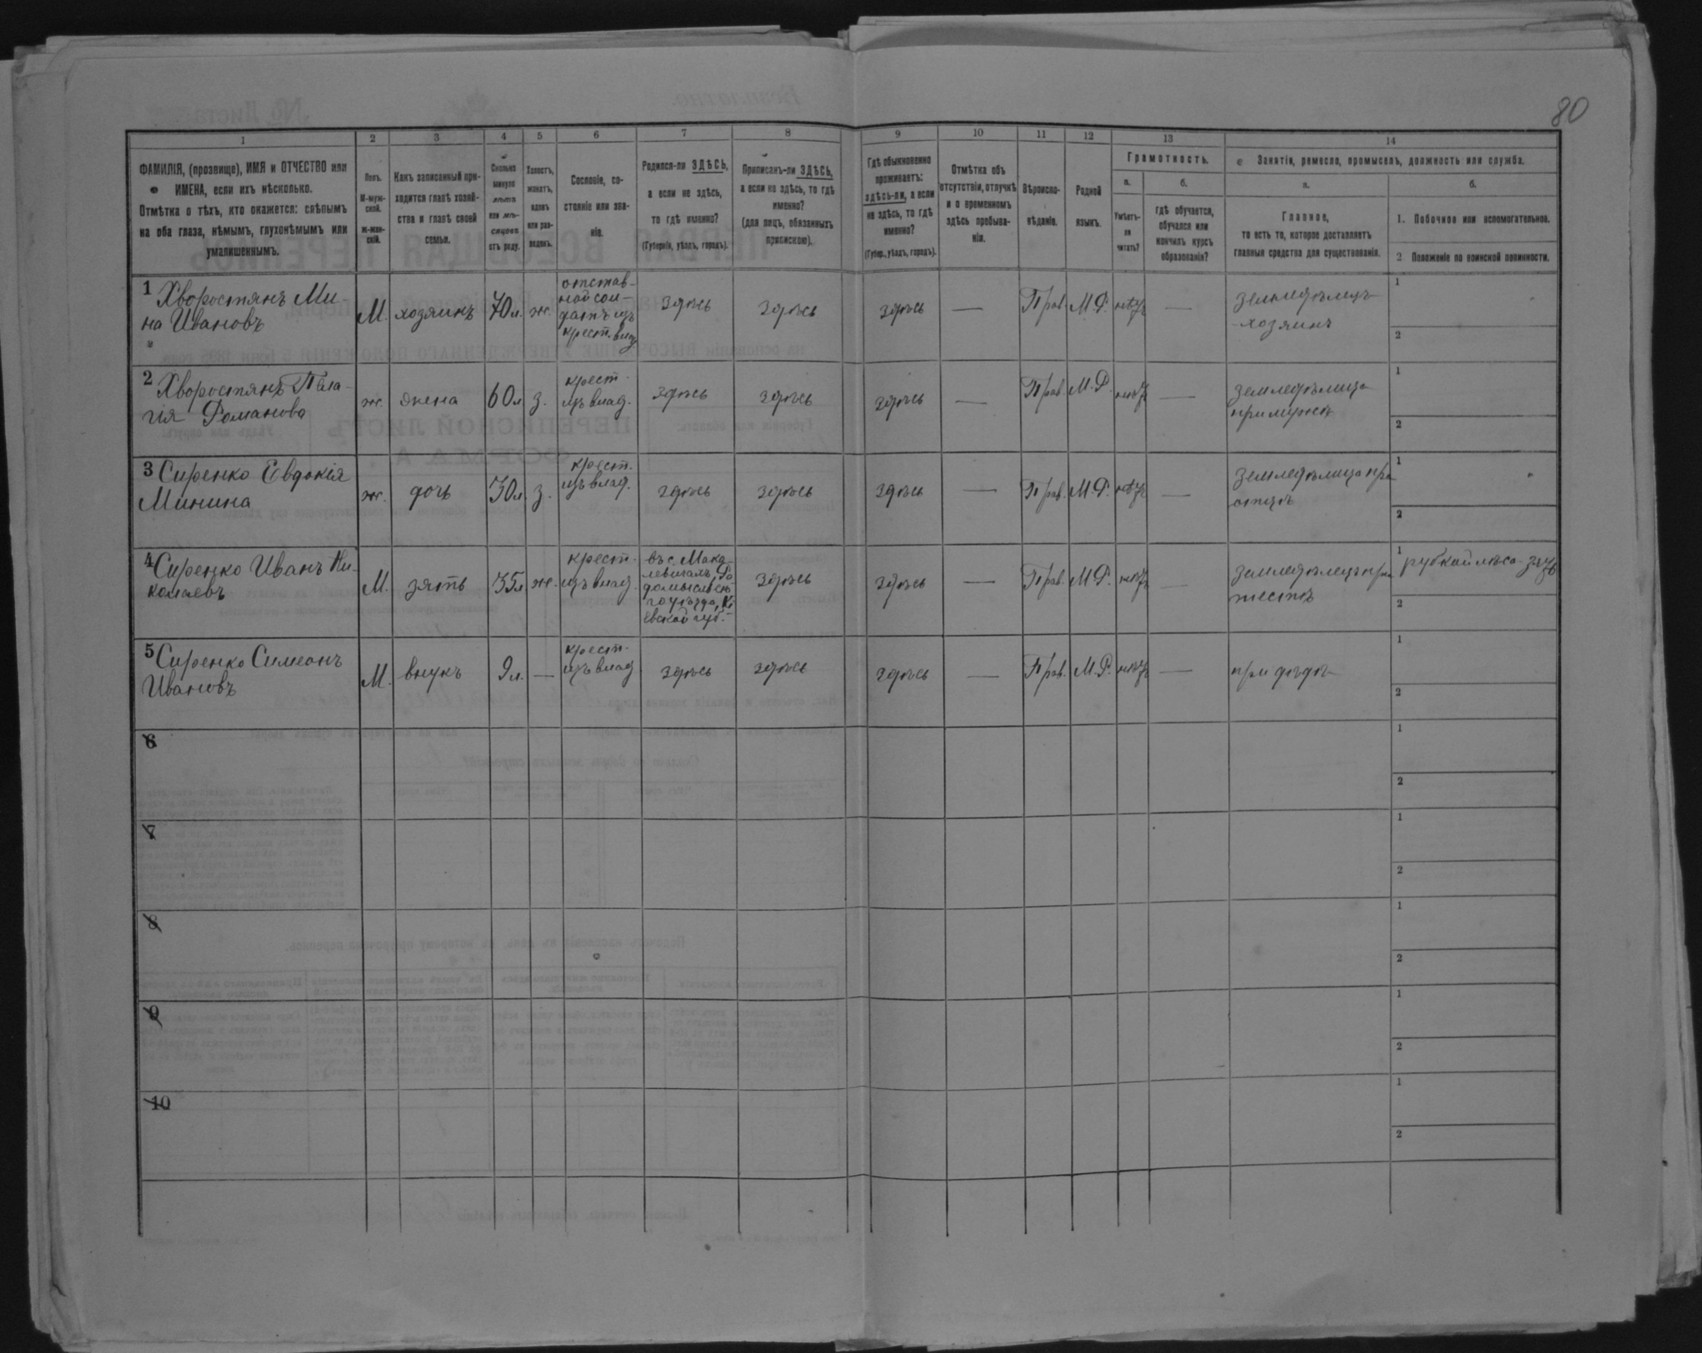 80
1 2 3 4 5 6 7 8 9 10 11 12 13 14
ФАМИЛІЯ, (прозвище), ИМЯ и ОТЧЕСТВО или
ИМЕНА, если ихъ нѣсколько.
Отмѣтка о тѣхъ, кто окажется: слѣпымъ
на оба глаза, нѣмымъ, глухонѣмымъ или
умалишеннымъ.
Полъ.
М-муж-
ской.
ж-жен-
скій.
Какъ записанный при-
ходится главѣ хозяй-
ства и главѣ своей
семьи.
Сколько
минуло
лѣтъ
или мѣ-
сяцевъ
отъ роду.
Холостъ,
женатъ,
вдовъ
или раз-
веденъ.
Сословіе, со-
стояніе или зва-
ніе.
Родился-ли ЗДѢСЬ,
а если не здѣсь,
то гдѣ именно?
(Губернія, уѣздъ, городъ).
Приписанъ-ли ЗДѢСЬ,
а если не здѣсь, то гдѣ
именно?
(для лицъ, обязанныхъ
припискою).
Гдѣ обыкновенно
проживаетъ:
здѣсь-ли, а если
не здѣсь, то гдѣ
именно?
(Губер., уѣздъ, городъ).
Отмѣтка объ
отсутствіи, отлучкѣ
и о временномъ
здѣсь пребыва-
ніи.
Вѣроиспо-
вѣданіе.
Родной
языкъ.
Грамотность.
а.
Умѣетъ-
ли
читать?
б.
гдѣ обучается,
обучался или
кончилъ курсъ
образованія?
Занятіе, ремесло, промыселъ, должность или служба.
а.
Главное,
то есть то, которое доставляетъ
главныя средства для существованія.
б.
1. Побочное или вспомогательное.
2 Положеніе по воинской повинности.
1 Хворостянъ Ми-
на Ивановъ
М. хозяинъ 70 л. ж.
отстав-
ной сол-
датъ изъ
крест. влад.
здѣсь здѣсь здѣсь — Прав. М.Р. нѣтъ —
земледѣлецъ
хозяинъ
1
2
2 Хворостянъ Пела-
гія Романова
ж. жена 60 л. з.
крест.
изъ влад.
здѣсь здѣсь здѣсь — Прав. М.Р. нѣтъ —
земледѣлица
при мужѣ
1
2
3 Сиренко Евдокія
Минина
ж. дочь 30 л. з.
крест.
изъ влад.
здѣсь здѣсь здѣсь — Прав. М.Р. нѣтъ —
земледѣлица при
отцѣ
1
2
4 Сиренко Иванъ Ни-
колаевъ
М. зять 35 л. ж.
крест.
изъ влад.
въ с. Мака-
левичахъ, Ра-
домысльска-
го уѣзда, Кі-
евской губ.
здѣсь здѣсь — Прав. М.Р. нѣтъ —
земледѣлецъ при
тестѣ
1 рубкой лѣса
2
5 Сиренко Симеонъ
Ивановъ
М. внукъ 9 л. —
крест.
изъ влад.
здѣсь здѣсь здѣсь — Прав. М.Р. нѣтъ —
при дѣдѣ
1
2
6
1
2
7
1
2
8
1
2
9
1
2
10
1
2